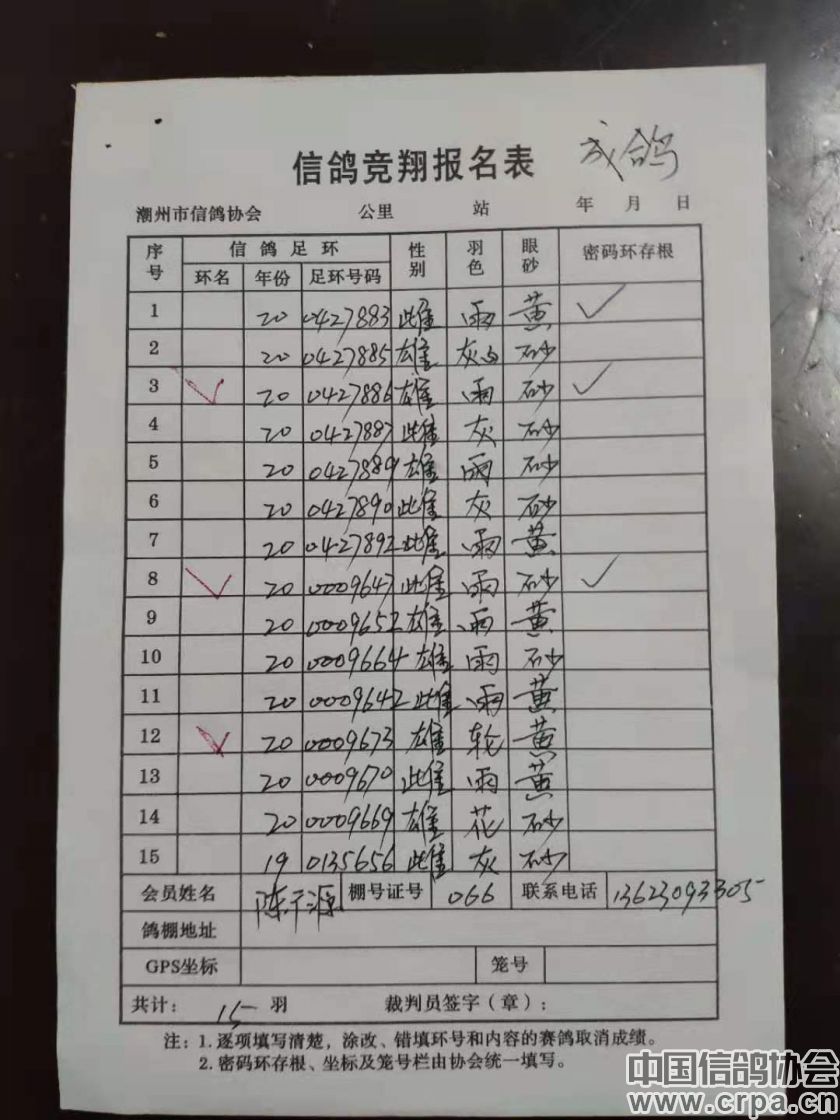 信鸽竞翔报名表 成鸽
潮州市信鸽协会 公里 站 年 月 日
序号 信鸽足环 性别 羽色 眼砂 密码环存根
环名 年份 足环号码
1 20 0427883 雌 雨 黄 ✓
2 20 0427885 雄 灰白 砂
3 ✓ 20 0427886 雄 雨 砂 ✓
4 20 0427887 雌 灰 砂
5 20 0427889 雄 雨 砂
6 20 0427890 雌 灰 砂
7 20 0427892 雌 雨 黄
8 ✓ 20 0009647 雌 雨 砂 ✓
9 20 0009652 雄 雨 黄
10 20 0009664 雄 雨 砂
11 20 0009642 雌 雨 黄
12 ✓ 20 0009673 雄 轮 黄
13 20 0009670 雌 雨 黄
14 20 0009669 雄 花 砂
15 19 0135656 雌 灰 砂
会员姓名 陈 源 棚号证号 066 联系电话 13623093305
鸽棚地址
GPS坐标 笼号
共计： 15 羽 裁判员签字（章）：
注：1.逐项填写清楚，涂改、错填环号和内容的赛鸽取消成绩。
2.密码环存根、坐标及笼号栏由协会统一填写。
中国信鸽协会
www.crpa.cn